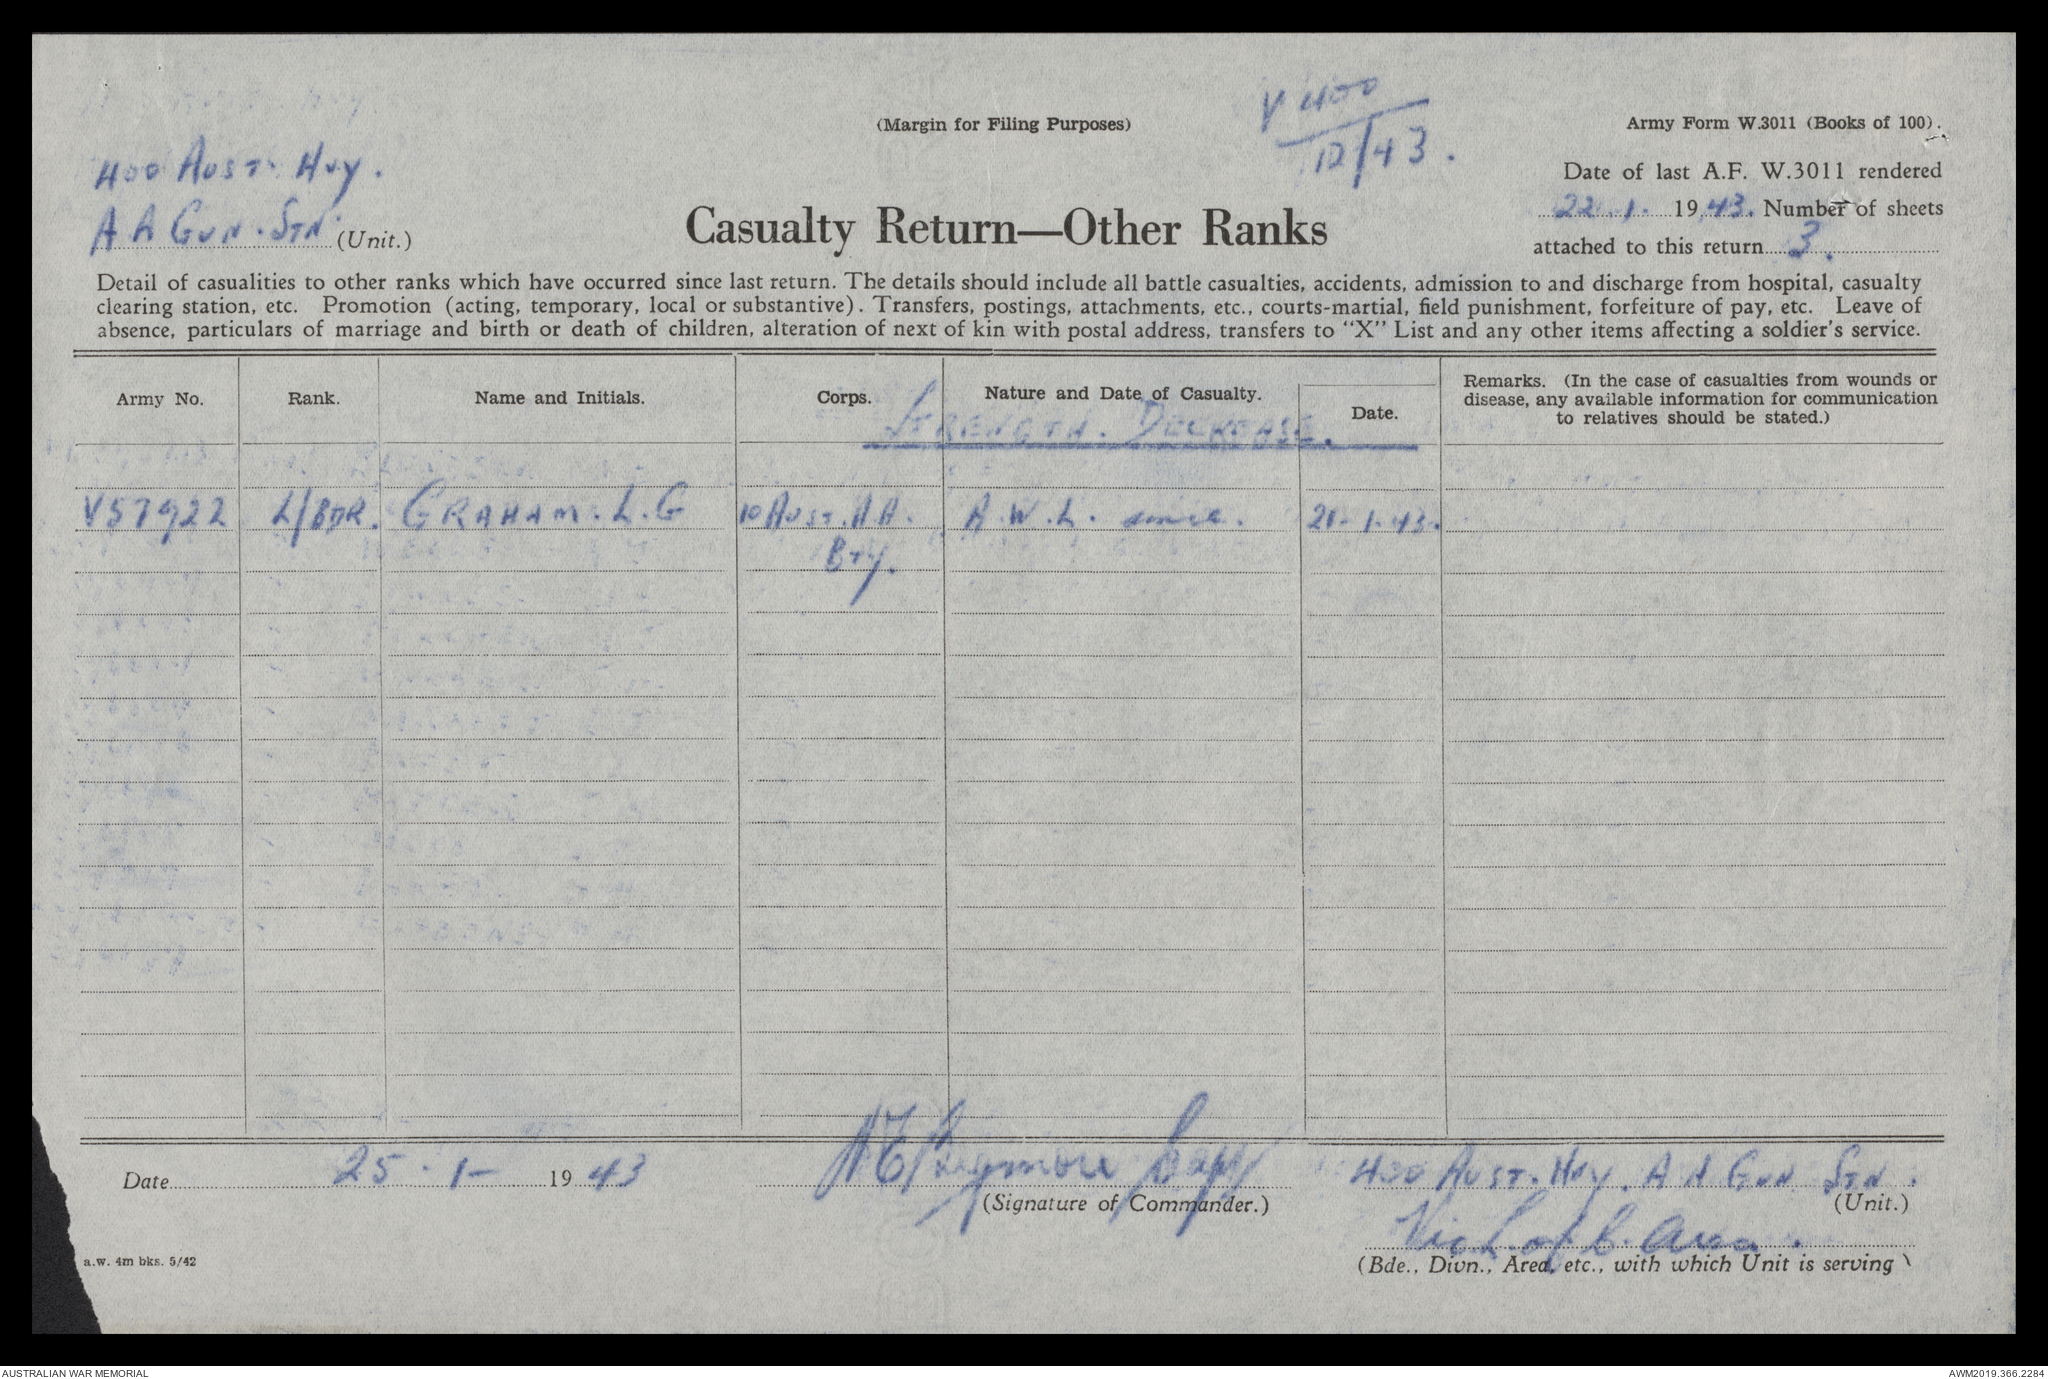 V 400
12/43.
(Margin for Filing Purposes)
Army Form W.3011 (Books of 100).
400 Aust. Hvy.
A A Gun. Stn. (Unit.)
Casualty Return—Other Ranks
Date of last A.F. W.3011 rendered
22.1. 1943. Number of sheets
attached to this return 3.
Detail of casualities to other ranks which have occurred since last return. The details should include all battle casualties, accidents, admission to and discharge from hospital, casualty
clearing station, etc. Promotion (acting, temporary, local or substantive). Transfers, postings, attachments, etc., courts-martial, field punishment, forfeiture of pay, etc. Leave of
absence, particulars of marriage and birth or death of children, alteration of next of kin with postal address, transfers to "X" List and any other items affecting a soldier's service.
Army No. Rank. Name and Initials. Corps. Nature and Date of Casualty. Date. Remarks. (In the case of casualties from wounds or
disease, any available information for communication
to relatives should be stated.)
STRENGTH. DECREASE.
V57922 L/BDR. GRAHAM. L. G 10 Aust. A A. A. W. L. since. 21-1-43.
Bty.
Date 25-1- 1943
Capt
(Signature of Commander.)
400 Aust. Hvy. A A Gun Stn.
(Unit.)
Vic L. of C. Area.
(Bde., Divn., Area, etc., with which Unit is serving
a.w. 4m bks. 5/42
AUSTRALIAN WAR MEMORIAL
AWM2019.366.2284